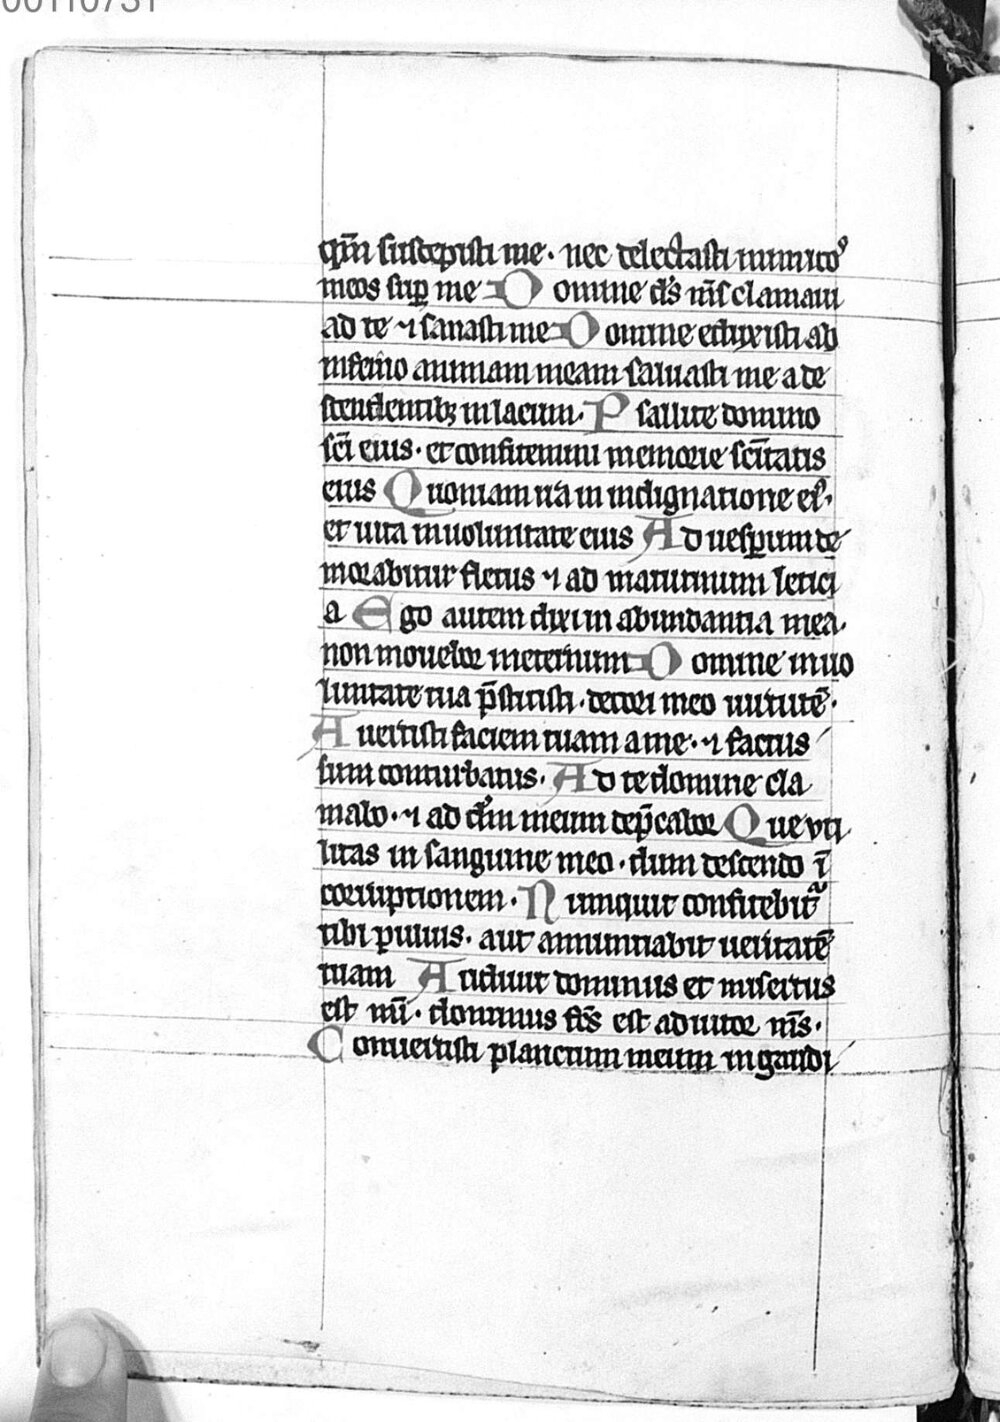 00110731
qm̄ suscepisti me · nec delectasti inimicoꝰ
meos sup̱ me Domine ds̄ ms̄ clamaui
ad te ⁊ sanasti me Domine eduxisti ab
inferno animam meam saluasti me a de
scendentibꝫ in lacum · Psallite domino
sc̄i eius · et confitemini memorie sc̄itatis
eius Quoniam ira in indignatione eiꝰ ·
et uita in uoluntate eius Ad uesp̱um de
morabitur fletus ⁊ ad matutinum letici
a Ego autem dixi in abundantia mea ·
non mouebor in eternum Domine in uo
luntate tua p̄stitisti · decori meo uirtutē ·
Auertisti faciem tuam a me · ⁊ factus
sum conturbatus · Ad te domine cla
mabo · ⁊ ad dm̄ meum dep̄cabor Que uti
litas in sanguine meo · dum descendo ī
corruptionem · Nunquit confitebit᷑
tibi puluis · aut annuntiabit ueritatē
tuam Audiuit dominus et misertus
est mī · dominus fc̄s est adiutor ms̄ ·
Conuertisti planctum meum in gaudi